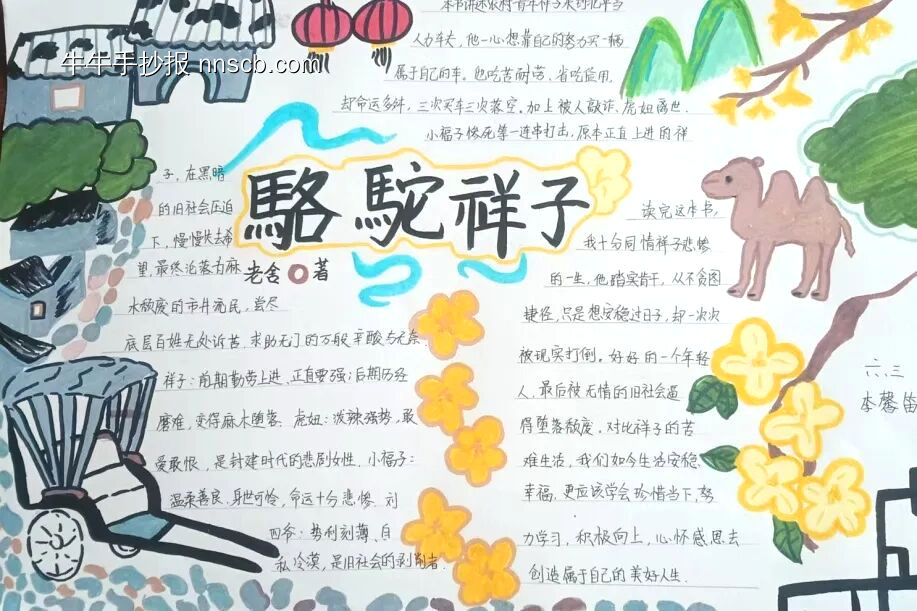 牛牛手抄报 nnscb.com
本书讲述农村青年祥子来到北平当
人力车夫，他一心想靠自己的努力买一辆
属于自己的车。他吃苦耐劳、省吃俭用，
却命运多舛，三次买车三次落空，加上被人敲诈、虎妞离世、
小福子惨死等一连串打击，原本正直上进的祥
子，在黑暗
的旧社会压迫
下，慢慢失去希
望，最终沦落为麻
木颓废的市井流民，尝尽
底层百姓无处诉苦，求助无门的万般辛酸与无奈。
駱駝祥子
老舍 著
祥子：前期勤劳上进、正直要强；后期历经
磨难，变得麻木堕落。虎妞：泼辣强势、敢
爱敢恨，是封建时代的悲剧女性。小福子：
温柔善良、身世可怜，命运十分悲惨。刘
四爷：势利刻薄、自
私冷漠，是旧社会的剥削者。
读完这本书，
我十分同情祥子悲惨
的一生，他踏实肯干，从不贪图
捷径，只是想安稳过日子，却一次次
被现实打倒。好好的一个年轻
人，最后被无情的旧社会逼
得堕落颓废。对比祥子的苦
难生活，我们如今生活安稳、
幸福，更应该学会珍惜当下，努
力学习，积极向上，心怀感恩去
创造属于自己的美好人生。
六.三
李馨笛